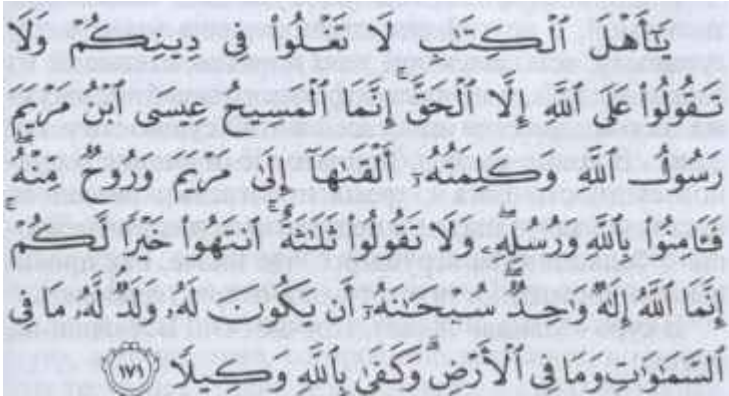 يَـٰٓأَهْلَ ٱلْكِتَـٰبِ لَا تَغْلُوا۟ فِى دِينِكُمْ وَلَا
تَقُولُوا۟ عَلَى ٱللَّهِ إِلَّا ٱلْحَقَّ ۚ إِنَّمَا ٱلْمَسِيحُ عِيسَى ٱبْنُ مَرْيَمَ
رَسُولُ ٱللَّهِ وَكَلِمَتُهُۥٓ أَلْقَىٰهَآ إِلَىٰ مَرْيَمَ وَرُوحٌ مِّنْهُ ۖ
فَـَٔامِنُوا۟ بِٱللَّهِ وَرُسُلِهِۦ ۖ وَلَا تَقُولُوا۟ ثَلَـٰثَةٌ ۚ ٱنتَهُوا۟ خَيْرًا لَّكُمْ ۚ
إِنَّمَا ٱللَّهُ إِلَـٰهٌ وَٰحِدٌ ۖ سُبْحَـٰنَهُۥٓ أَن يَكُونَ لَهُۥ وَلَدٌ ۘ لَّهُۥ مَا فِى
ٱلسَّمَـٰوَٰتِ وَمَا فِى ٱلْأَرْضِ ۗ وَكَفَىٰ بِٱللَّهِ وَكِيلًا ١٧١